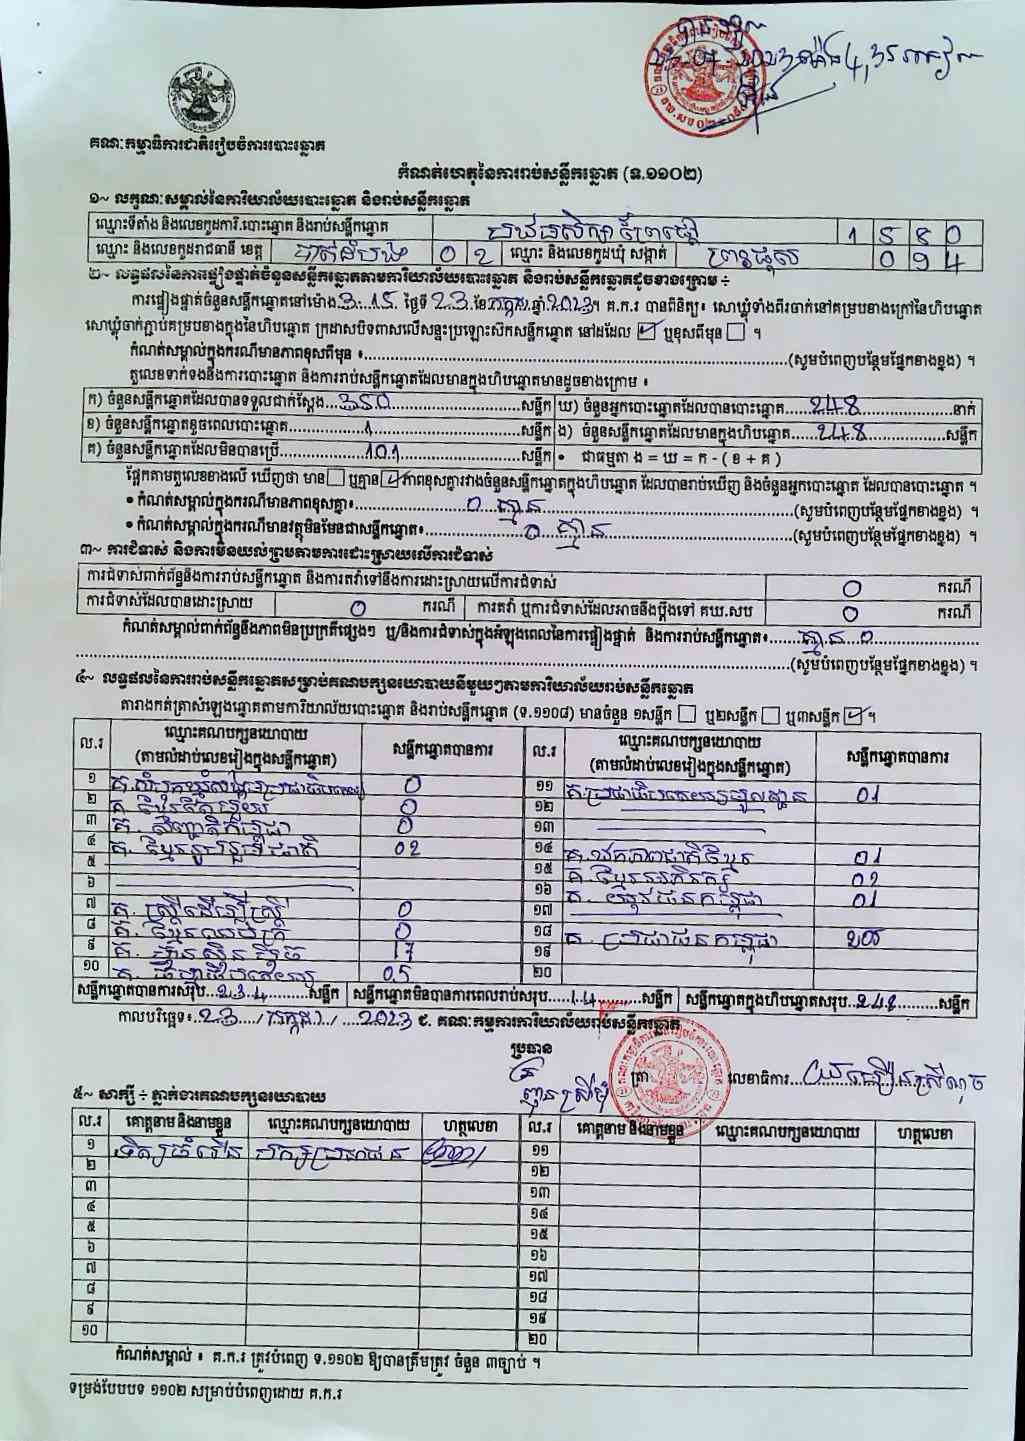 គណៈកម្មាធិការជាតិរៀបចំការបោះឆ្នោត
កំណត់ហេតុនៃការរាប់សន្លឹកឆ្នោត (ទ.១១០២)
១~ លក្ខណៈសម្គាល់នៃការិយាល័យបោះឆ្នោត និងរាប់សន្លឹកឆ្នោត
ឈ្មោះទីតាំង និងលេខកូដការិ.បោះឆ្នោត និងរាប់សន្លឹកឆ្នោត 1 5 8 0
ឈ្មោះ និងលេខកូដរាជធានី ខេត្ត បាត់ដំបង 0 2 ឈ្មោះ និងលេខកូដឃុំ សង្កាត់ ព្រះផុស 0 9 4
២~ លទ្ធផលនៃការផ្ទៀងផ្ទាត់ចំនួនសន្លឹកឆ្នោតតាមការិយាល័យបោះឆ្នោត និងរាប់សន្លឹកឆ្នោតដូចខាងក្រោម ÷
ការផ្ទៀងផ្ទាត់ចំនួនសន្លឹកឆ្នោតនៅម៉ោង 3:15 ថ្ងៃទី 23 ខែ កក្កដា ឆ្នាំ 2023។ គ.ក.រ បានពិនិត្យ៖ សោឃ្លុំទាំងពីរចាក់នៅគម្របខាងក្រៅនៃហិបឆ្នោត
សោឃ្លុំចាក់ភ្ជាប់គម្របខាងក្នុងនៃហិបឆ្នោត ក្រដាសបិទពាសលើសន្ទះប្រឡោះស៊កសន្លឹកឆ្នោត នៅដដែល ☑ ឬខុសពីមុន ☐ ។
កំណត់សម្គាល់ក្នុងករណីមានភាពខុសពីមុន ៖ (សូមបំពេញបន្ថែមផ្នែកខាងខ្នង) ។
តួលេខទាក់ទងនឹងការបោះឆ្នោត និងការរាប់សន្លឹកឆ្នោតដែលមានក្នុងហិបឆ្នោតមានដូចខាងក្រោម ៖
ក) ចំនួនសន្លឹកឆ្នោតដែលបានទទួលជាក់ស្តែង 350 សន្លឹក ឃ) ចំនួនអ្នកបោះឆ្នោតដែលបានបោះឆ្នោត 248 នាក់
ខ) ចំនួនសន្លឹកឆ្នោតខូចពេលបោះឆ្នោត 1 សន្លឹក ង) ចំនួនសន្លឹកឆ្នោតដែលមានក្នុងហិបឆ្នោត 248 សន្លឹក
គ) ចំនួនសន្លឹកឆ្នោតដែលមិនបានប្រើ 101 សន្លឹក • ជាធម្មតា ង = ឃ = ក - ( ខ + គ )
ផ្អែកតាមតួលេខខាងលើ ឃើញថា មាន ☐ ឬគ្មាន ☑ ភាពខុសគ្នារវាងចំនួនសន្លឹកឆ្នោតក្នុងហិបឆ្នោត ដែលបានរាប់ឃើញ និងចំនួនអ្នកបោះឆ្នោត ដែលបានបោះឆ្នោត ។
• កំណត់សម្គាល់ក្នុងករណីមានភាពខុសគ្នា៖ 0 គ្មាន (សូមបំពេញបន្ថែមផ្នែកខាងខ្នង) ។
• កំណត់សម្គាល់ក្នុងករណីមានវត្ថុមិនមែនជាសន្លឹកឆ្នោត៖ 0 គ្មាន (សូមបំពេញបន្ថែមផ្នែកខាងខ្នង) ។
៣~ ការជំទាស់ និងការមិនយល់ព្រមតាមការដោះស្រាយលើការជំទាស់
ការជំទាស់ពាក់ព័ន្ធនឹងការរាប់សន្លឹកឆ្នោត និងការតវ៉ាទៅនឹងការដោះស្រាយលើការជំទាស់ 0 ករណី
ការជំទាស់ដែលបានដោះស្រាយ 0 ករណី ការតវ៉ា ឬការជំទាស់ដែលអាចនឹងប្តឹងទៅ គឃ.សប 0 ករណី
កំណត់សម្គាល់ពាក់ព័ន្ធនឹងភាពមិនប្រក្រតីផ្សេងៗ ឬ/និងការជំទាស់ក្នុងអំឡុងពេលនៃការផ្ទៀងផ្ទាត់ និងការរាប់សន្លឹកឆ្នោត៖ គ្មាន 0
(សូមបំពេញបន្ថែមផ្នែកខាងខ្នង) ។
៤~ លទ្ធផលនៃការរាប់សន្លឹកឆ្នោតសម្រាប់គណបក្សនយោបាយនីមួយៗតាមការិយាល័យរាប់សន្លឹកឆ្នោត
តារាងកត់ត្រាសំឡេងឆ្នោតតាមការិយាល័យបោះឆ្នោត និងរាប់សន្លឹកឆ្នោត (ទ.១១០៨) មានចំនួន ១សន្លឹក ☐ ឬ២សន្លឹក ☐ ឬ៣សន្លឹក ☑ ។
ល.រ ឈ្មោះគណបក្សនយោបាយ (តាមលំដាប់លេខរៀងក្នុងសន្លឹកឆ្នោត) សន្លឹកឆ្នោតបានការ ល.រ ឈ្មោះគណបក្សនយោបាយ (តាមលំដាប់លេខរៀងក្នុងសន្លឹកឆ្នោត) សន្លឹកឆ្នោតបានការ
១ 0 ១១ គ.ប្រជាធិបតេយ្យមូលដ្ឋាន 01
២ 0 ១២
៣ 0 ១៣
៤ គ. ខ្មែររួបរួមជាតិ 02 ១៤ គ.ឯកភាពជាតិខ្មែរ 01
៥ ១៥ គ.ខ្មែរអភិរក្ស 02
៦ ១៦ គ. យុវជនកម្ពុជា 01
៧ គ. ស្ត្រីដើម្បីស្ត្រី 0 ១៧
៨ 0 ១៨ គ. ប្រជាជនកម្ពុជា 205
៩ គ. ហ្វ៊ុនស៊ិនប៉ិច 17 ១៩
១០ 05 ២០
សន្លឹកឆ្នោតបានការសរុប 234 សន្លឹក សន្លឹកឆ្នោតមិនបានការពេលរាប់សរុប 14 សន្លឹក សន្លឹកឆ្នោតក្នុងហិបឆ្នោតសរុប 248 សន្លឹក
កាលបរិច្ឆេទ៖ 23 / កក្កដា / 2023 ជ. គណៈកម្មការការិយាល័យរាប់សន្លឹកឆ្នោត
ប្រធាន
ត្រា លេខាធិការ
៥~ សាក្សី ÷ ភ្នាក់ងារគណបក្សនយោបាយ
ល.រ គោត្តនាម និងនាមខ្លួន ឈ្មោះគណបក្សនយោបាយ ហត្ថលេខា ល.រ គោត្តនាម និងនាមខ្លួន ឈ្មោះគណបក្សនយោបាយ ហត្ថលេខា
១ បក្សប្រជាជន ១១
២ ១២
៣ ១៣
៤ ១៤
៥ ១៥
៦ ១៦
៧ ១៧
៨ ១៨
៩ ១៩
១០ ២០
កំណត់សម្គាល់ ៖ គ.ក.រ ត្រូវបំពេញ ទ.១១០២ ឱ្យបានត្រឹមត្រូវ ចំនួន ៣ច្បាប់ ។
ទម្រង់បែបបទ ១១០២ សម្រាប់បំពេញដោយ គ.ក.រ